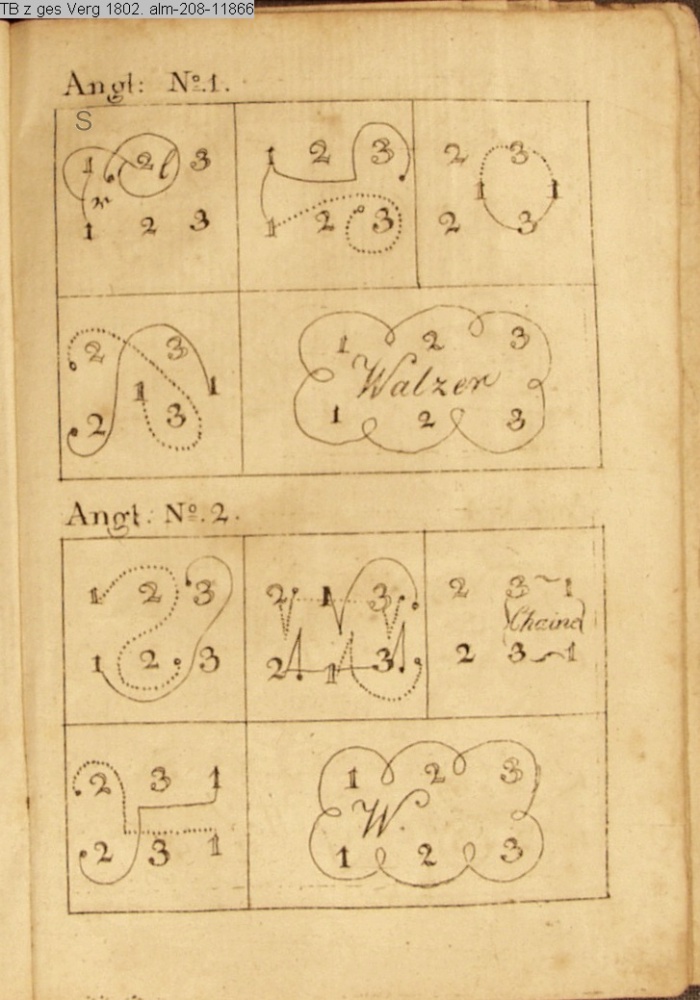 TB z ges Verg 1802. alm-208-11866
Angl: No. 1.
S
1 2 l 3
r
1 2 3
1 2 3
1 2 3
2 3
1 1
2 3
2 3
1 1
2 3
1 2 3
Walzer
1 2 3
Angl: No. 2.
1 2 3
1 2 3
2 1 3
2 1 3
2 3 ~ 1
Chaine
2 3 ~ 1
2 3 1
2 3 1
1 2 3
W.
1 2 3